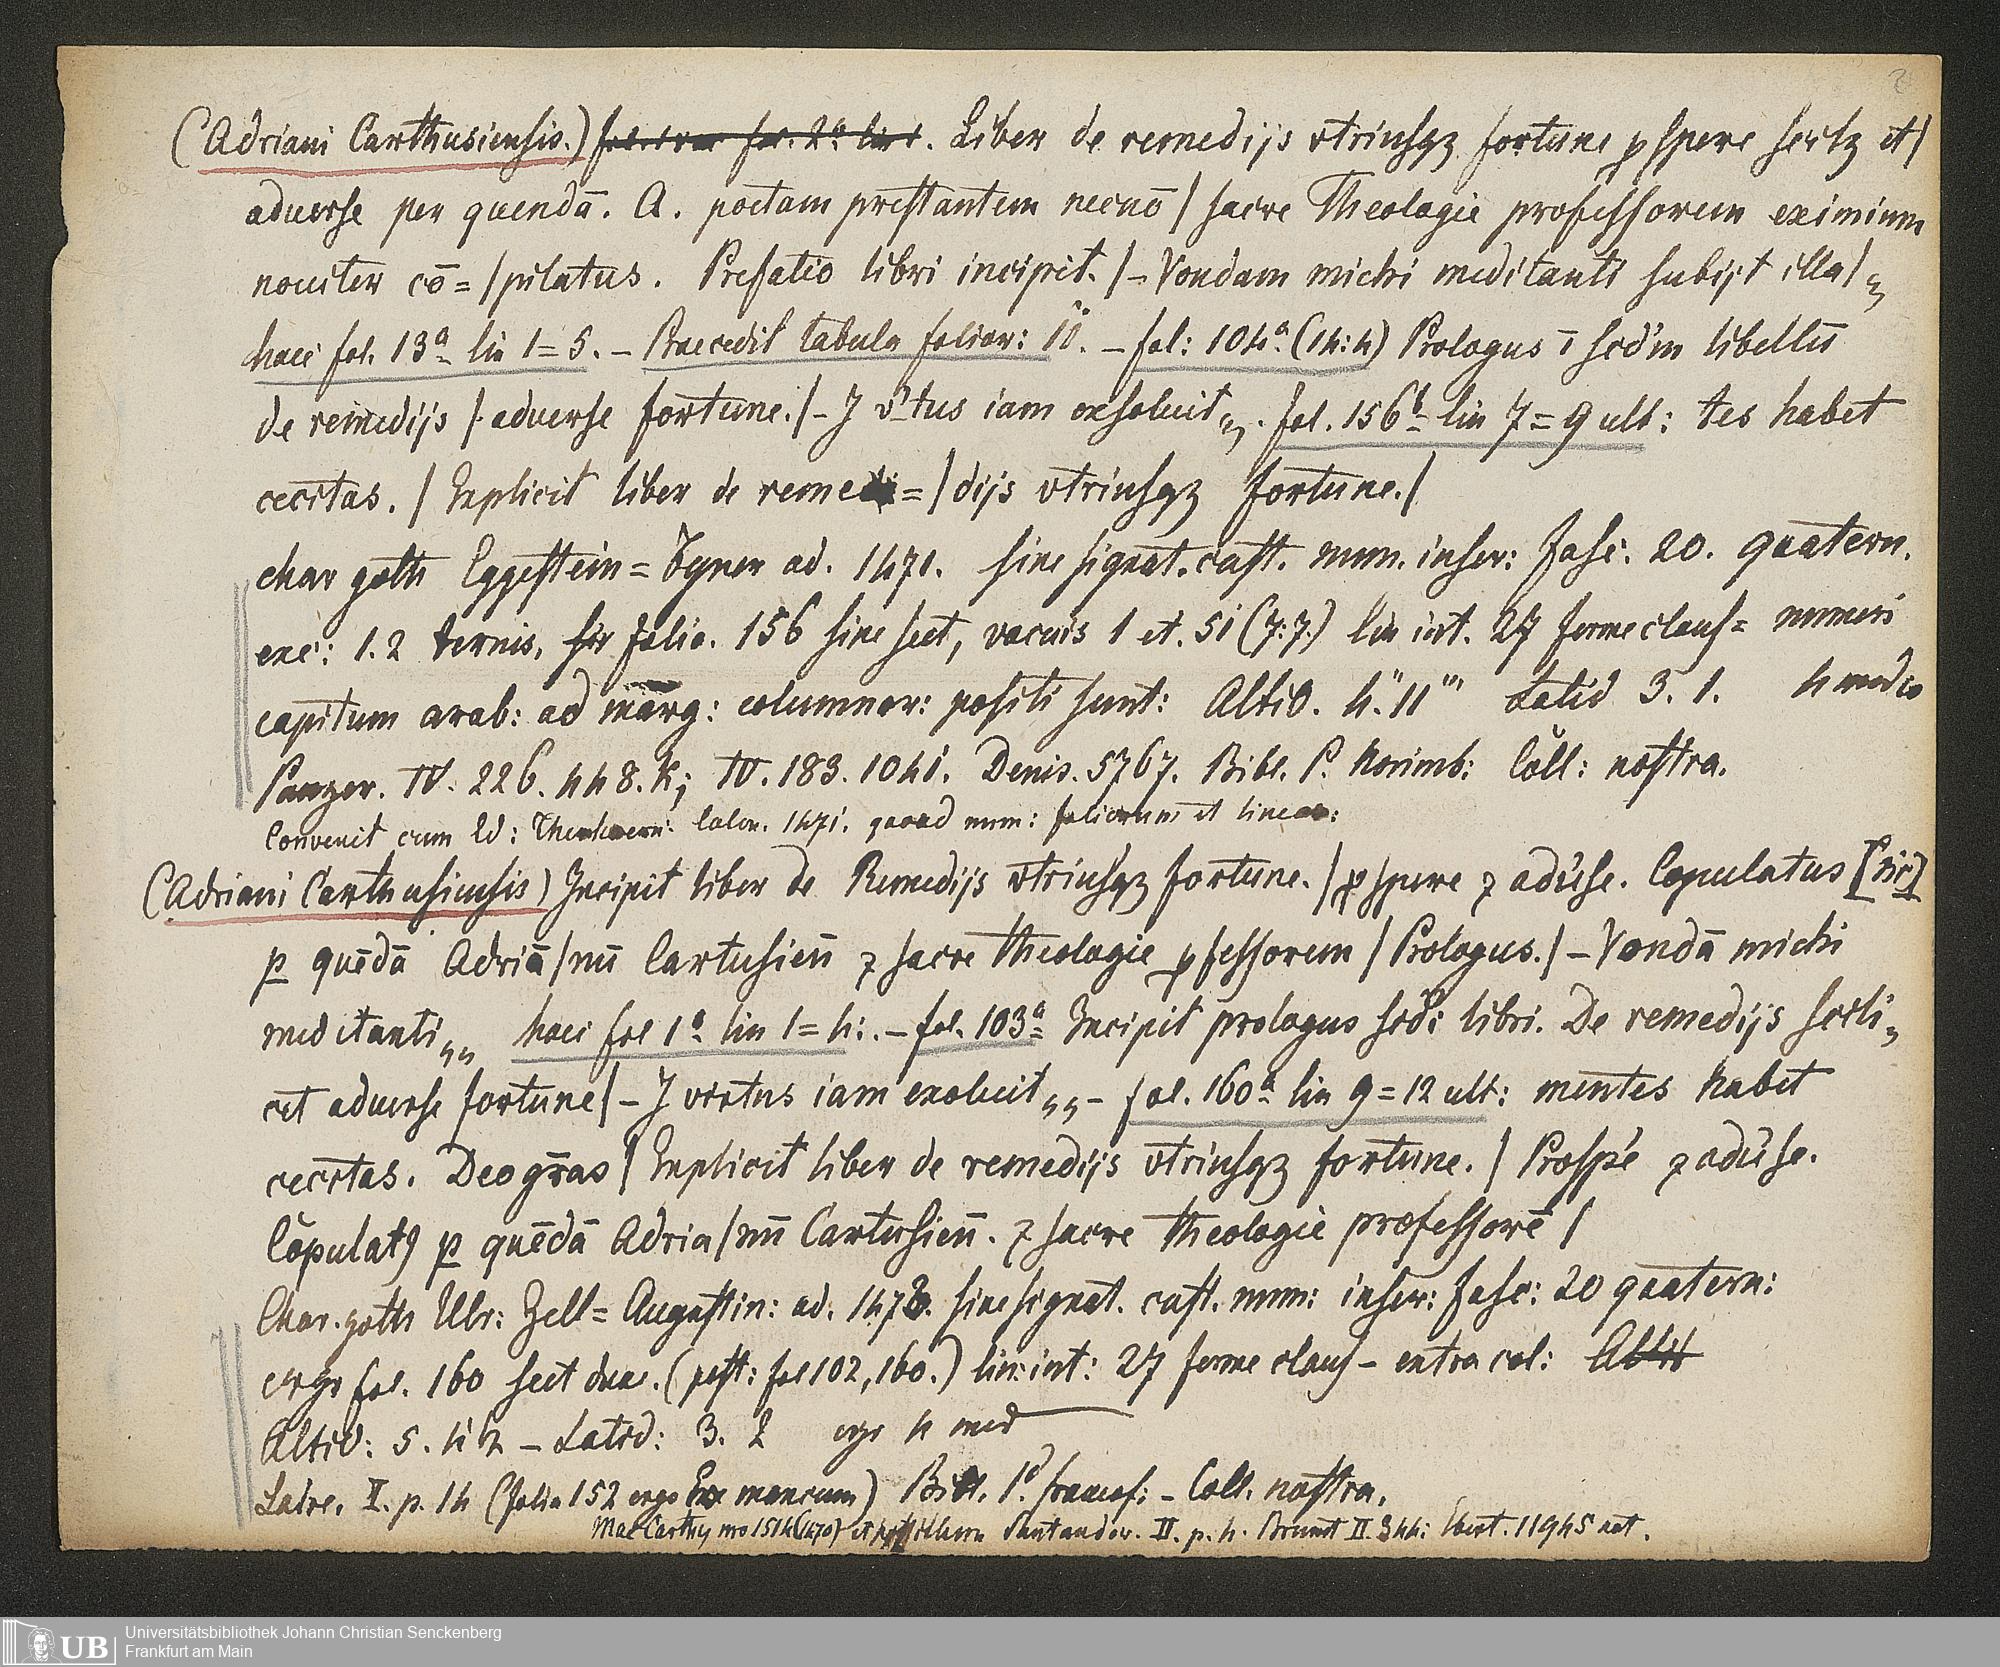 (Adriani Carthusiensis.) Liber de remedijs vtriusqz fortune pspere scilz et/
aduerse per quendā. A. poetam prestantem necnō / sacre Theologie professorem eximium
nouiter cō=/pilatus. Prefatio libri incipit./ – Vondam michi meditanti subijt illa/„
haec fol. 13a lin 1=5. – Praecedit tabula folior: 11. – fol: 104a. (14:4) Prologus ī scd'm libellū
de remedijs / aduerse fortune./ – J v'tus iam exoluit„. fol. 156b lin 7=9 ult: tes habet
cecitas. / Explicit liber de reme=/dijs vtriusqz fortune./
char goth Eggestein = ad. 1471. sine signat. cust. num. inscr: Fasc: 20. quatern.
exc: 1.2 ternis, folio. 156 sine sect, vacuis 1 et. 51 (7:7.) lin int. 27 ferme claus= numeri
capitum arab: ad marg: columnar: positi sunt: Altid. 4." 11"' Latid 3. 1. 4 medio
Panzer. IV. 226. 448. K; IV. 183. 1041. Denis. 5767. Bibl. P. Norimb: Coll: nostra.
Convenit cum Ed: Colon. 1471. quoad num: foliorum et linear:
(Adriani Carthusiensis) Incipit liber de Remedijs vtriusqz fortune. / pspere z adu'se. Copulatus [sic]
p quēdā Adriā/nū Cartusieñ z sacre theologie pfessorem / Prologus./ – Vondā michi
meditanti„„ haec fol 1a lin 1=4:. – fol. 103a Incipit prologus scdi libri. De remedijs scili„
cet aduerse fortune / – J virtus iam exoluit„„ – fol. 160a lin 9=12 ult: mentes habet
cecitas. Deo gr̄as / Explicit liber de remedijs vtriusqz fortune. / Prospe' z adu'se.
Cōpulat9 p quēdā Adria/nū Cartusieñ. z sacre theologie professorē /
Char. goth Ulr: Zell = Augustin: ad. sine signat. cust. num: inscr: Fasc: 20 quatern:
ergo fol. 160 sect duae. (post: fol 102, 160.) lin: int: 27 ferme claus – extra col:
Altid: 5. – Latid: 3. 2 ergo 4 med
Laire. II. p. 14 (folia 152 ergo Ex mancum) Bibl. P. francof: – Coll. nostra.
MacCarthy no 1514 (1470) et Santander. II. p. 4. Brunet II. 344: Ebert. 11945 not.
Universitätsbibliothek Johann Christian Senckenberg
UB Frankfurt am Main